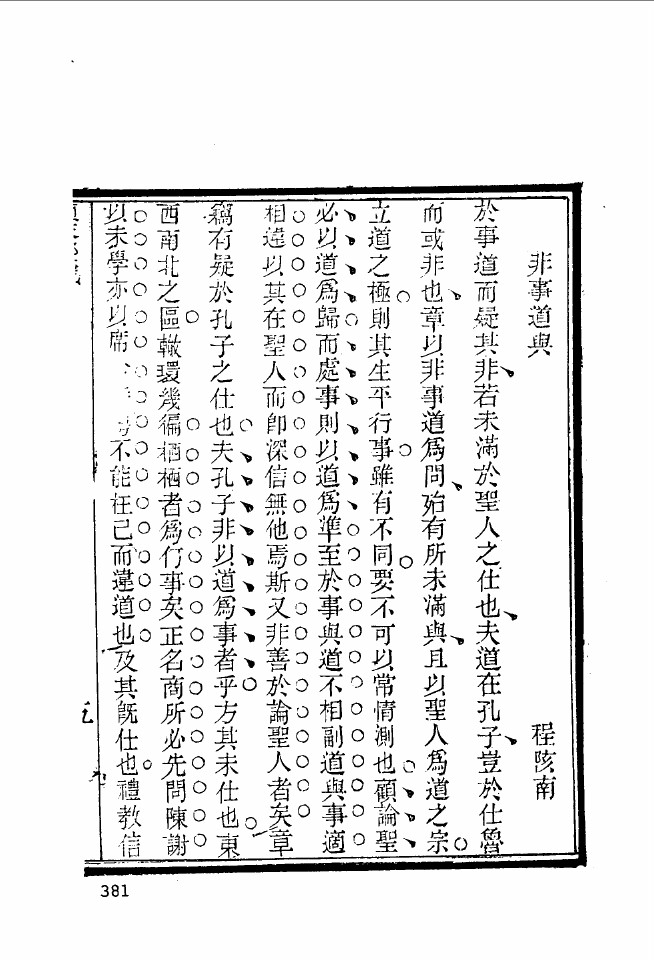 非事道與 程陔南
於事道而疑其非若未滿於聖人之仕也夫道在孔子豈於仕魯
而或非也章以非事道爲問殆有所未滿與且以聖人爲道之宗
立道之極則其生平行事雖有不同要不可以常情測也顧論聖
必以道爲歸而處事則以道爲準至於事與道不相副道與事適
相違以其在聖人而卽深信無他焉斯又非善於論聖人者矣章
竊有疑於孔子之仕也夫孔子非以道爲事者乎方其未仕也東
西南北之區轍環幾徧栖栖者爲何事矣正名商所必先問陳謝
以未學亦以席不能枉己而違道也及其旣仕也禮教信
381